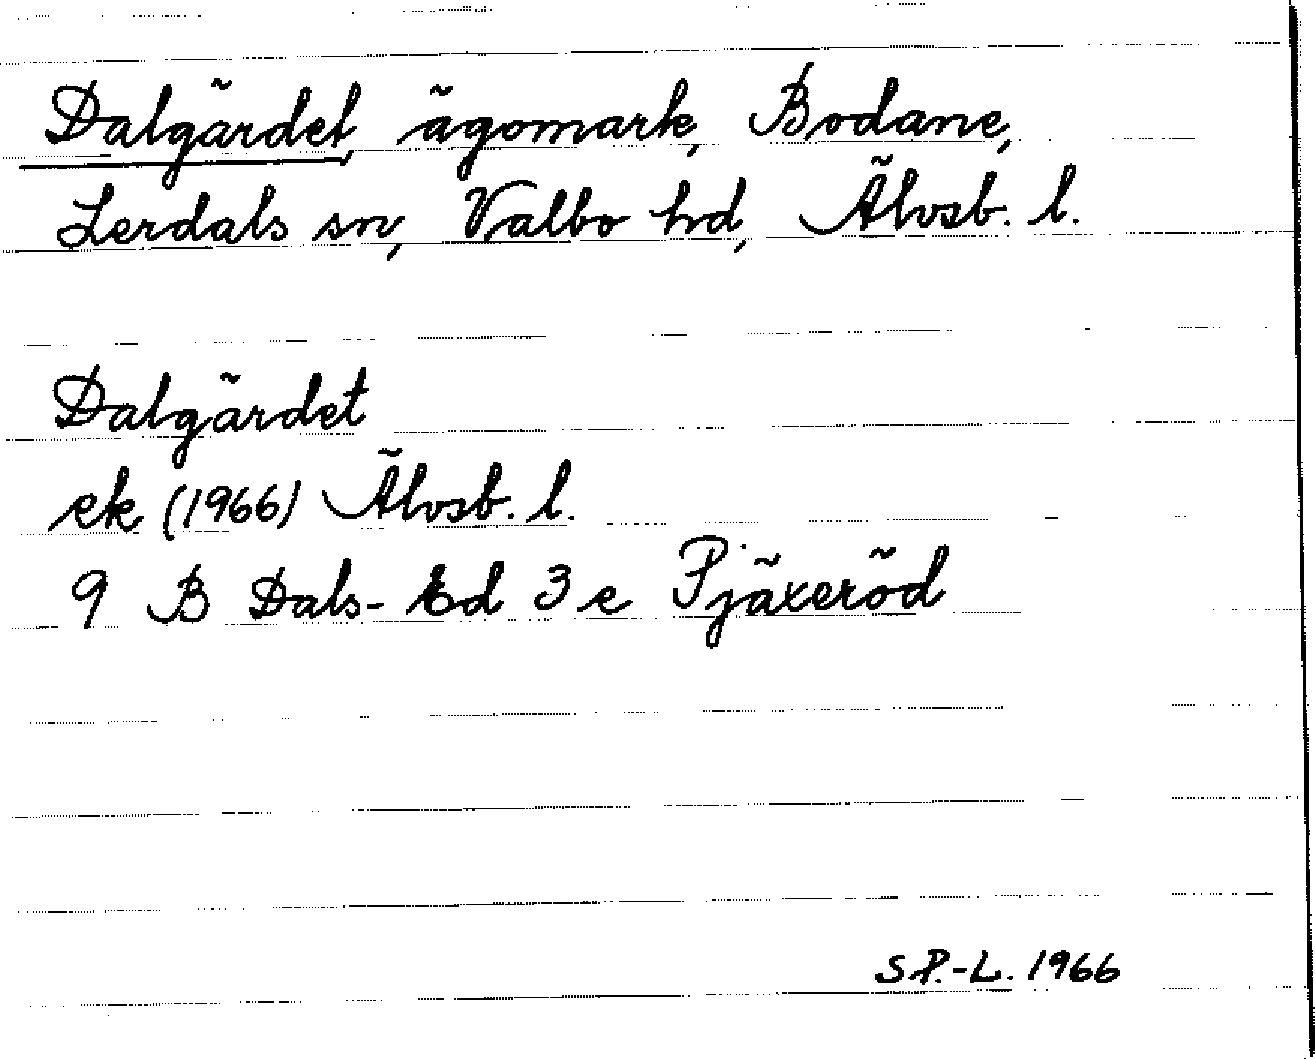 Dalgärdet, ägomark, Bodane,
Lerdals sn, Valbo hd, Älvsb. l.
Dalgärdet
ek (1966) Älvsb. l.
9 B Dals-Ed 3 e Pjäxeröd
S P.-L. 1966